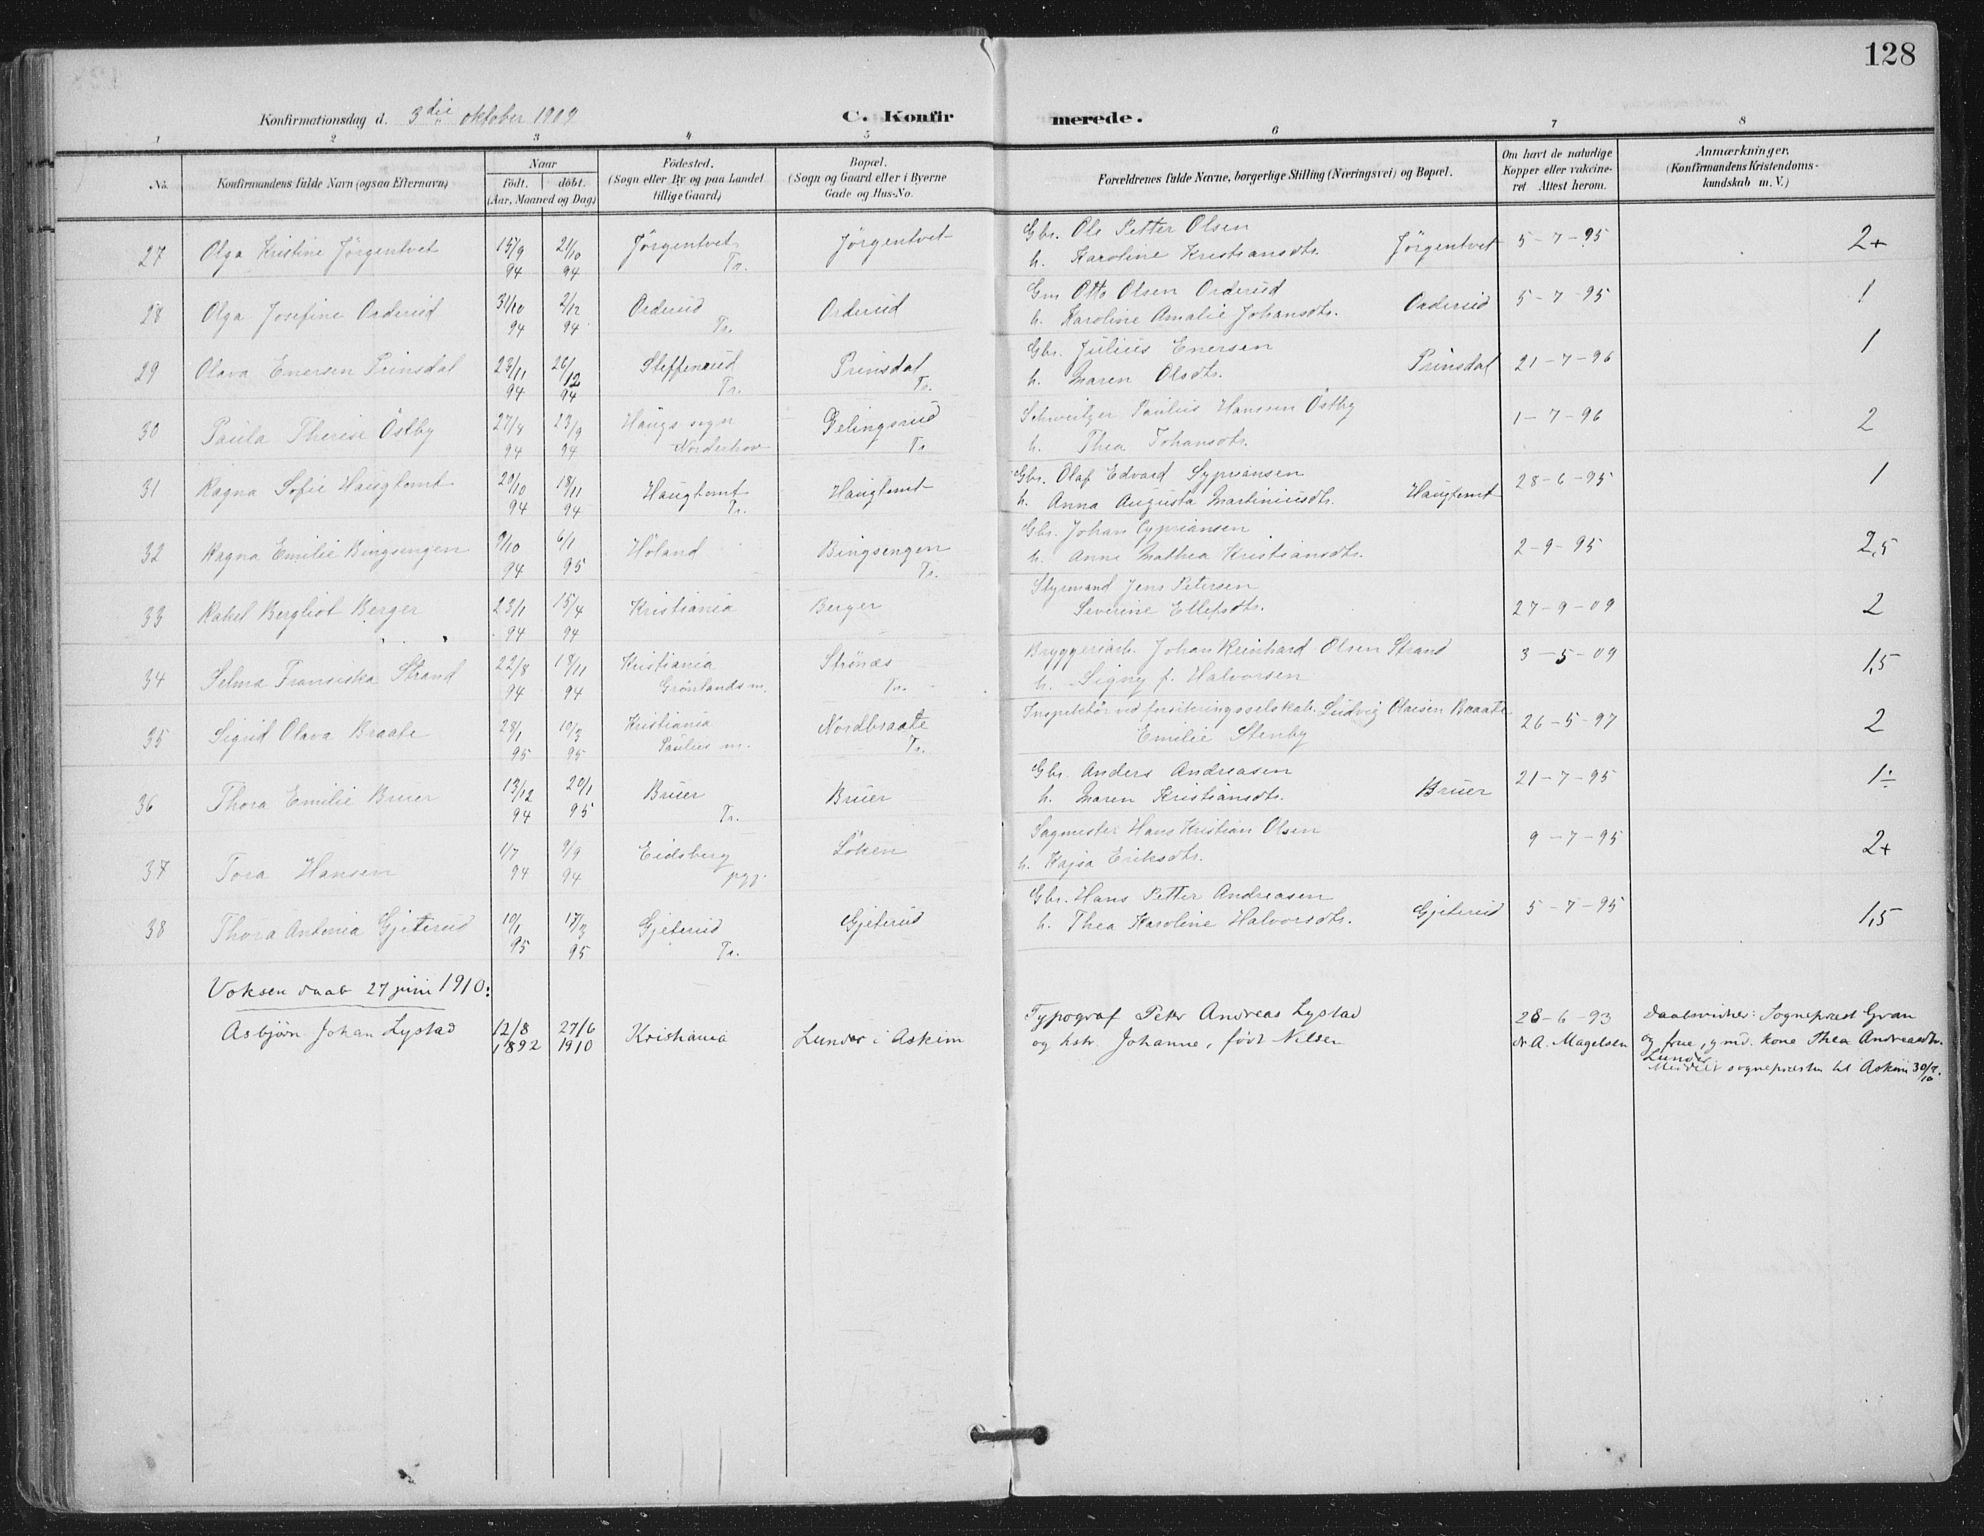 128
Konfirmationsdag d. 3die oktober 1909 C. Konfirmerede.
1 2 3 4 5 6 7 8
No. Konfirmandens fulde Navn (ogsaa Efternavn) Naar født. døbt. (Aar, Maaned og Dag) Fødested. (Sogn eller By og paa Landet tillige Gaard) Bopæl. (Sogn og Gaard eller i Byerne Gade og Hus-No. Forældrenes fulde Navne, borgerlige Stilling (Næringsvei) og Bopæl. Om havt de naturlige Kopper eller vakcineret Attest herom. Anmærkninger. (Konfirmandens Kristendomskundskab m. V.)
27 Olga Kristine Jörgentvet 15/9 94 21/10 94 Jörgentvet Tr. Jörgentvet Gbr. Ole Petter Olsen h. Karoline Kristiansdtr. Jörgentvet 5-7-95 2+
28 Olga Josefine Orderud 31/10 94 2/12 94 Orderud Tr. Orderud Gm Otto Olsen Orderud h. Karoline Amalie Johansdtr. Orderud 5-7-95 1
29 Olava Enersen Prinsdal 23/11 94 26/12 94 Steffensrud Tr. Prinsdal Tr. Gbr. Julius Enersen h. Maren Olsdtr. Prinsdal 21-7-96 1
30 Paula Therese Östby 27/8 94 23/9 94 Haugs sogn Norderhov Gelingsrud Tr. Schweitzer Paulus Hansen Östby h. Thea Johansdtr. 1-7-96 2
31 Ragna Sofie Haugtomt 20/10 94 18/11 94 Haugtomt Tr. Haugtomt Gbr. Olaf Edvard Sypriansen h. Anna Augusta Martiniusdtr. Haugtomt 28-6-95 1
32 Ragna Emilie Bingsengen 9/10 94 6/1 95 Höland Bingsengen Tr. Gbr. Johan Cypriansen h. Anne Mathea Kristiansdtr. 2-9-95 2,5
33 Rakel Bergliot Berger 23/1 94 15/4 94 Kristiania Berger Styrmand Jens Petersen Severine Ellefsdtr. 27-9-09 2
34 Selma Fransiska Strand 22/8 94 18/11 94 Kristiania Grönlands m. Strönæs Tr. Bryggeriarb. Johan Reinhard Olsen Strand h. Signy f. Halvorsen 3-5-09 1,5
35 Sigrid Olava Braate 28/1 95 10/3 95 Kristiania Paulus m. Nordbraate Tr. Inspektör ved forsikringsselskab Ludvig Olaisen Braate Emilie Stenby 26-5-97 2
36 Thora Emilie Bruer 13/12 94 20/1 95 Bruer Tr. Bruer Gbr. Anders Andreasen h. Maren Kristiansdtr. Bruer 21-7-95 1÷
37 Tora Hansen 1/7 94 9/9 94 Eidsberg pgj. Löken Sagmester Hans Kristian Olsen h. Kajsa Eriksdtr. 9-7-95 2+
38 Thora Antonia Gjeterud 10/1 95 17/3 95 Gjeterud Tr. Gjeterud Gbr. Hans Petter Andreasen h. Thea Karoline Halvorsdtr. Gjeterud 5-7-95 1,5
Voksen daab 27 juni 1910:
Asbjørn Johan Lystad 12/8 1892 27/6 1910 Kristiania Lunder i Askim Typograf Peter Andreas Lystad og hstr. Johanne, født Nilsen 28-6-93 dr A. Magelsen Daabsvidner: Sogneprest Gran og frue, gmd. kone Thea Andreasdtr. Lunder
Meddelt sognepresten til Askim